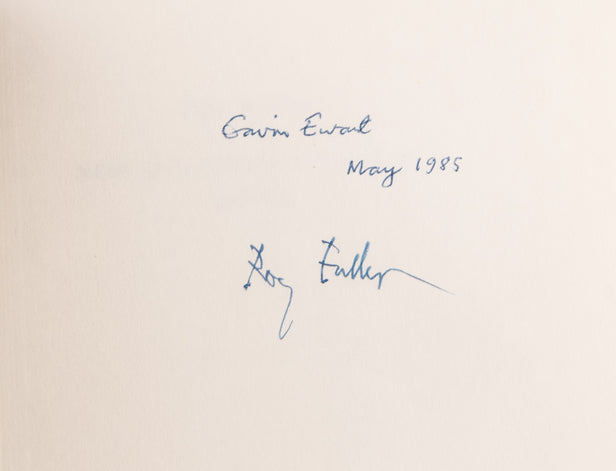 Gavin Ewart
May 1985
Roy Fuller